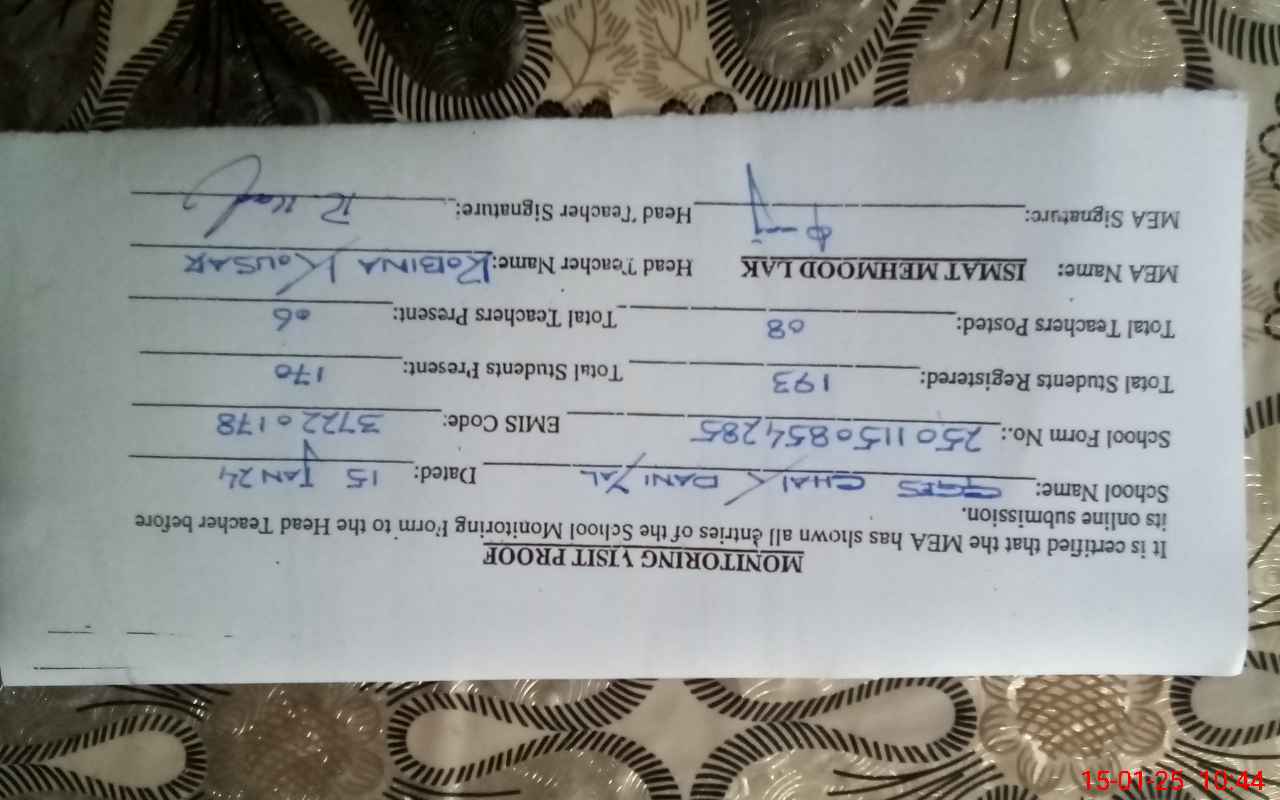 MONITORING VISIT PROOF
It is certified that the MEA has shown all entries of the School Monitoring Form to the Head Teacher before
its online submission.
School Name: GGES CHAK DANIYAL Dated: 15 JAN 24
School Form No.: 2501150854285 EMIS Code: 37220178
Total Students Registered: 193 Total Students Present: 170
Total Teachers Posted: 08 Total Teachers Present: 06
MEA Name: ISMAT MEHMOOD LAK Head Teacher Name: ROBINA KOUSAR
MEA Signature: Head Teacher Signature:
15-01-25 10:44